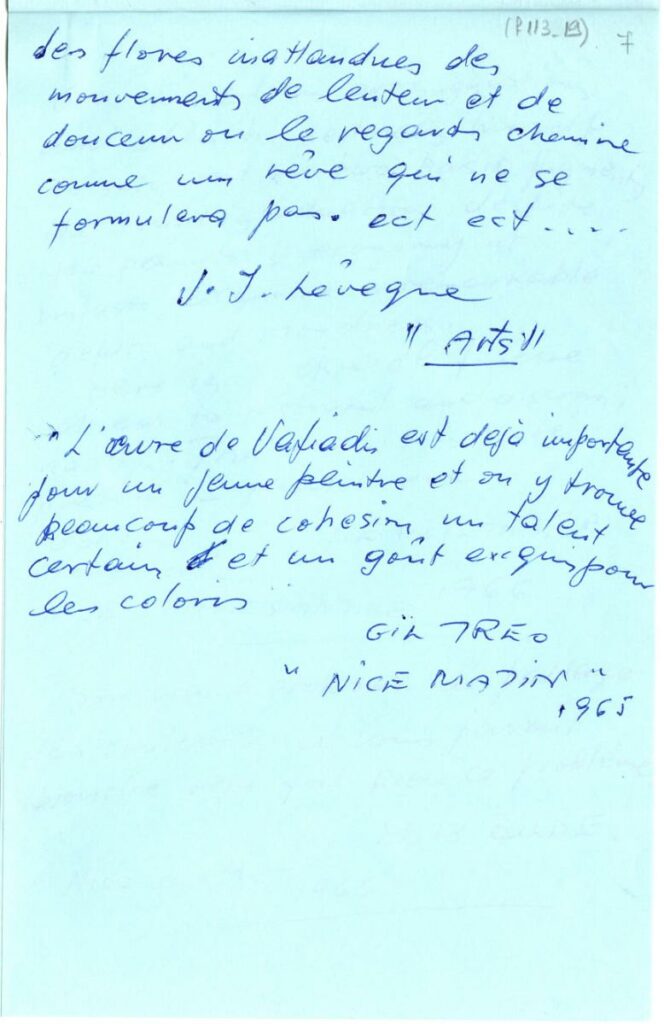 (P113_19) 7
des flores inattandues des
mouvements de lenteur et de
douceur ou le regards chemine
comme um rêve qui ne se
formulera pas. ect ect.....
J. J. Lêveque
"Arts"
"L'œuvre de Vafiadis est dejà importante
pour un jeune peintre et on y trouve
beaucoup de cohesion, un talent
certain et un goût exquis pour
les coloris"
GIL TREO
"NICE MATIN"
1965